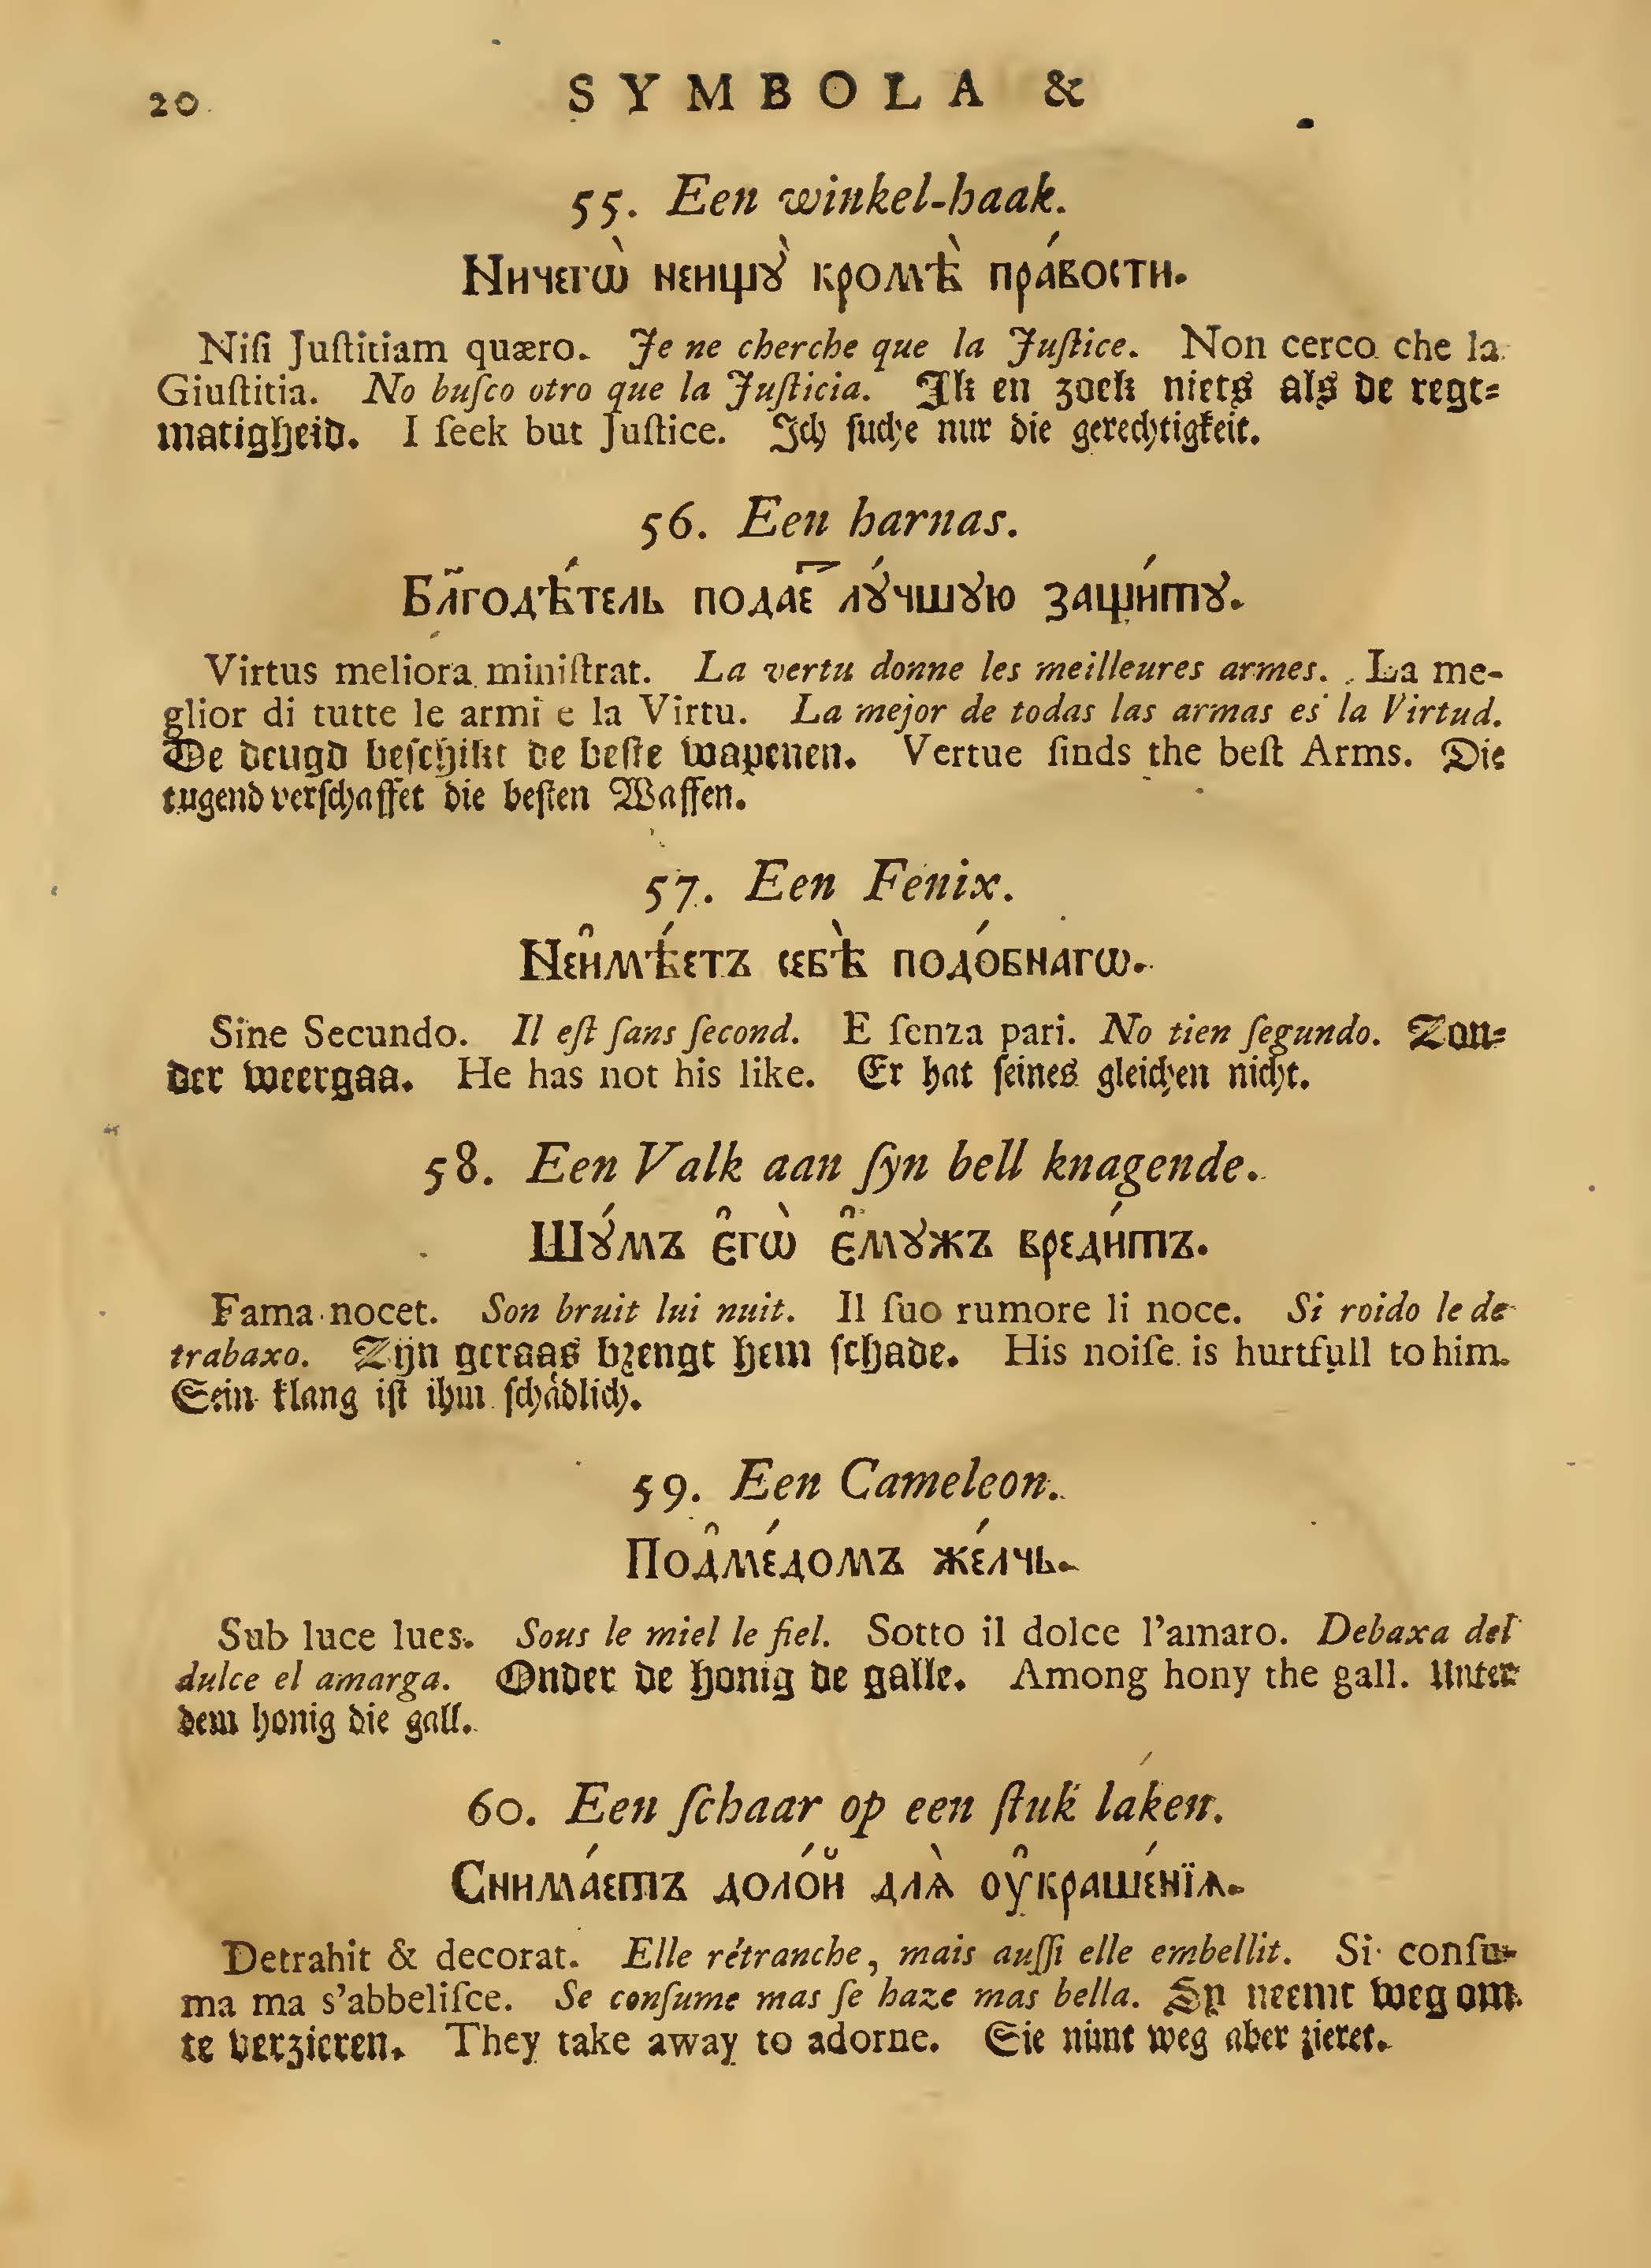 20 SYMBOLA &
55. Een winkel-haak.
Ничегѡ̀ ненщꙋ̀ кромѣ̀ пра́вости.
Niſi Juſtitiam quæro. Je ne cherche que la Juſtice. Non cerco che la
Giuſtitia. No buſco otro que la Juſticia. Ik en zoek niets als de regt-
matigheid. I ſeek but Juſtice. Ich ſuche nur die gerechtigkeit.
56. Een harnas.
Бл҃годѣ́тель подае҆т лꙋ́чшꙋю защи́тꙋ.
Virtus meliora miniſtrat. La vertu donne les meilleures armes. La me-
glior di tutte le armi e la Virtu. La mejor de todas las armas es la Virtud.
De deugd beſchikt de beſte wapenen. Vertue finds the beſt Arms. Die
tugend verſchaffet die beſten Waffen.
57. Een Fenix.
Неи҆мѣ́етъ себѣ̀ подо́бнагѡ.
Sine Secundo. Il eſt ſans ſecond. E ſenza pari. No tien ſegundo. Zon-
der weergaa. He has not his like. Er hat ſeines gleichen nicht.
58. Een Valk aan ſyn bell knagende.
Шꙋ́мъ є҆гѡ̀ є҆мꙋжъ вреди́тъ.
Fama nocet. Son bruit lui nuit. Il ſuo rumore li noce. Si roido le de-
trabaxo. Zijn geraas brengt hem ſchade. His noiſe is hurtfull to him.
Sein klang iſt ihm ſchädlich.
59. Een Cameleon.
Под̾ме́домъ же́лчь.
Sub luce lues. Sous le miel le fiel. Sotto il dolce l'amaro. Debaxa del
dulce el amarga. Onder de honig de galle. Among hony the gall. Unter
dem honig die gall.
60. Een ſchaar op een ſtuk laken.
Снима́етъ доло́й длѧ̀ оу҆краше́нїѧ.
Detrahit & decorat. Elle rétranche, mais auſſi elle embellit. Si conſu-
ma ma s'abbeliſce. Se conſume mas ſe haze mas bella. Sy neemt weg om
te verzieren. They take away to adorne. Sie nimt weg aber zieret.